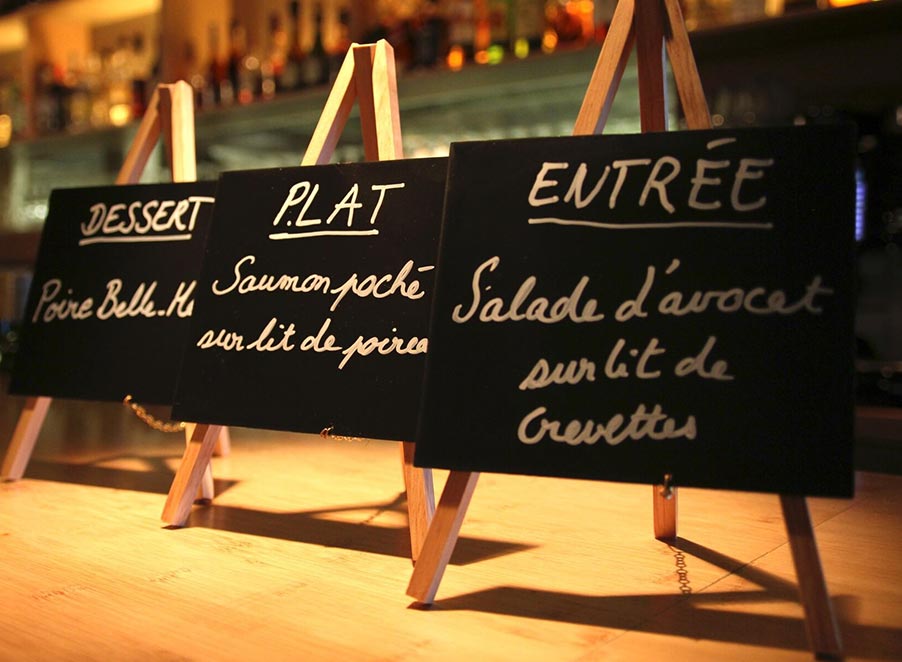 DESSERT
Poire Belle-He
PLAT
Saumon poché
sur lit de poirea
ENTRÉE
Salade d'avocat
sur lit de
Crevettes